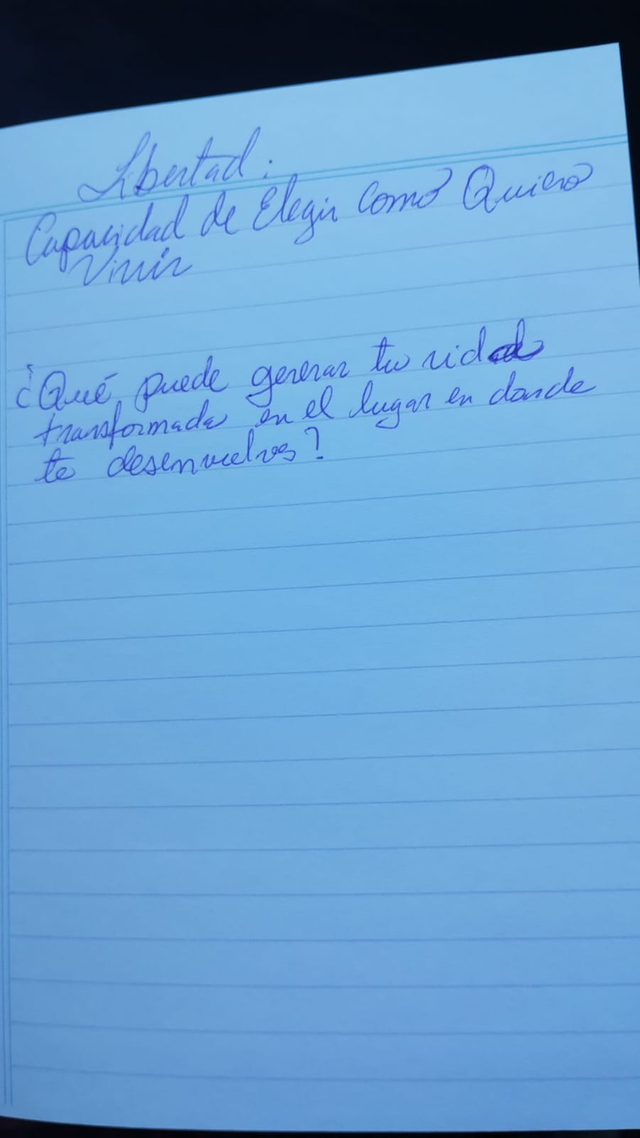 Libertad:
Capacidad de Elegir como Quiero
Vivir
¿Qué puede generar tu vida
transformada en el lugar en donde
te desenvuelves?